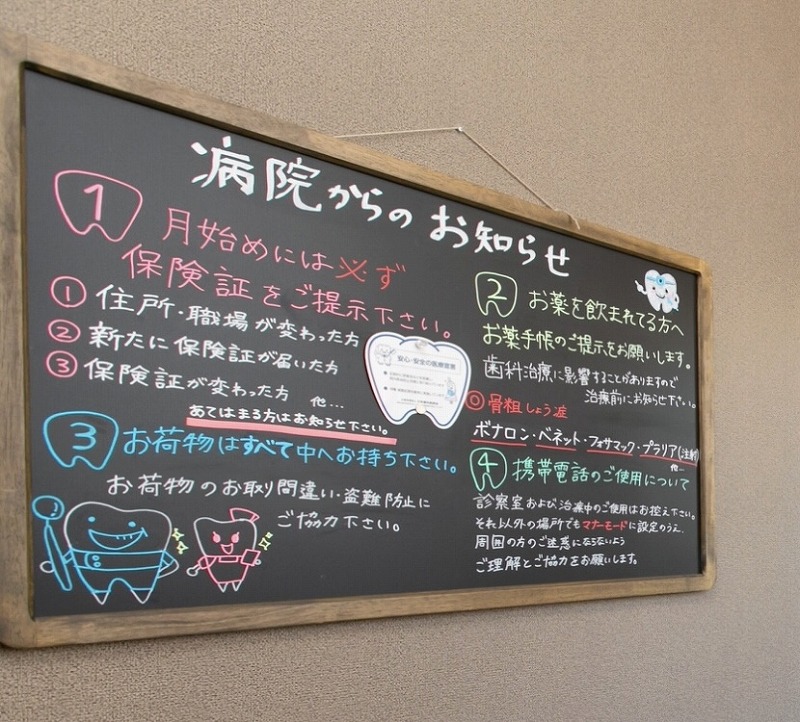 病院からの お知らせ
1 月始めには必ず
保険証をご提示下さい。
① 住所・職場が変わった方
② 新たに保険証が届いた方
③ 保険証が変わった方 他…
あてはまる方はお知らせ下さい。
安心・安全の医療宣言
2 お薬を飲まれてる方へ
お薬手帳のご提示をお願いします。
歯科治療に影響することがありますので
治療前にお知らせ下さい。
骨粗しょう症
ボナロン・ベネット・フォサマック・プラリア(注射)
他…
3 お荷物はすべて中へお持ち下さい。
お荷物のお取り間違い・盗難防止に
ご協力下さい。
4 携帯電話のご使用について
診察室および治療中のご使用はお控え下さい。
それ以外の場所でもマナーモードに設定のうえ、
周囲の方のご迷惑にならないよう
ご理解とご協力をお願いします。